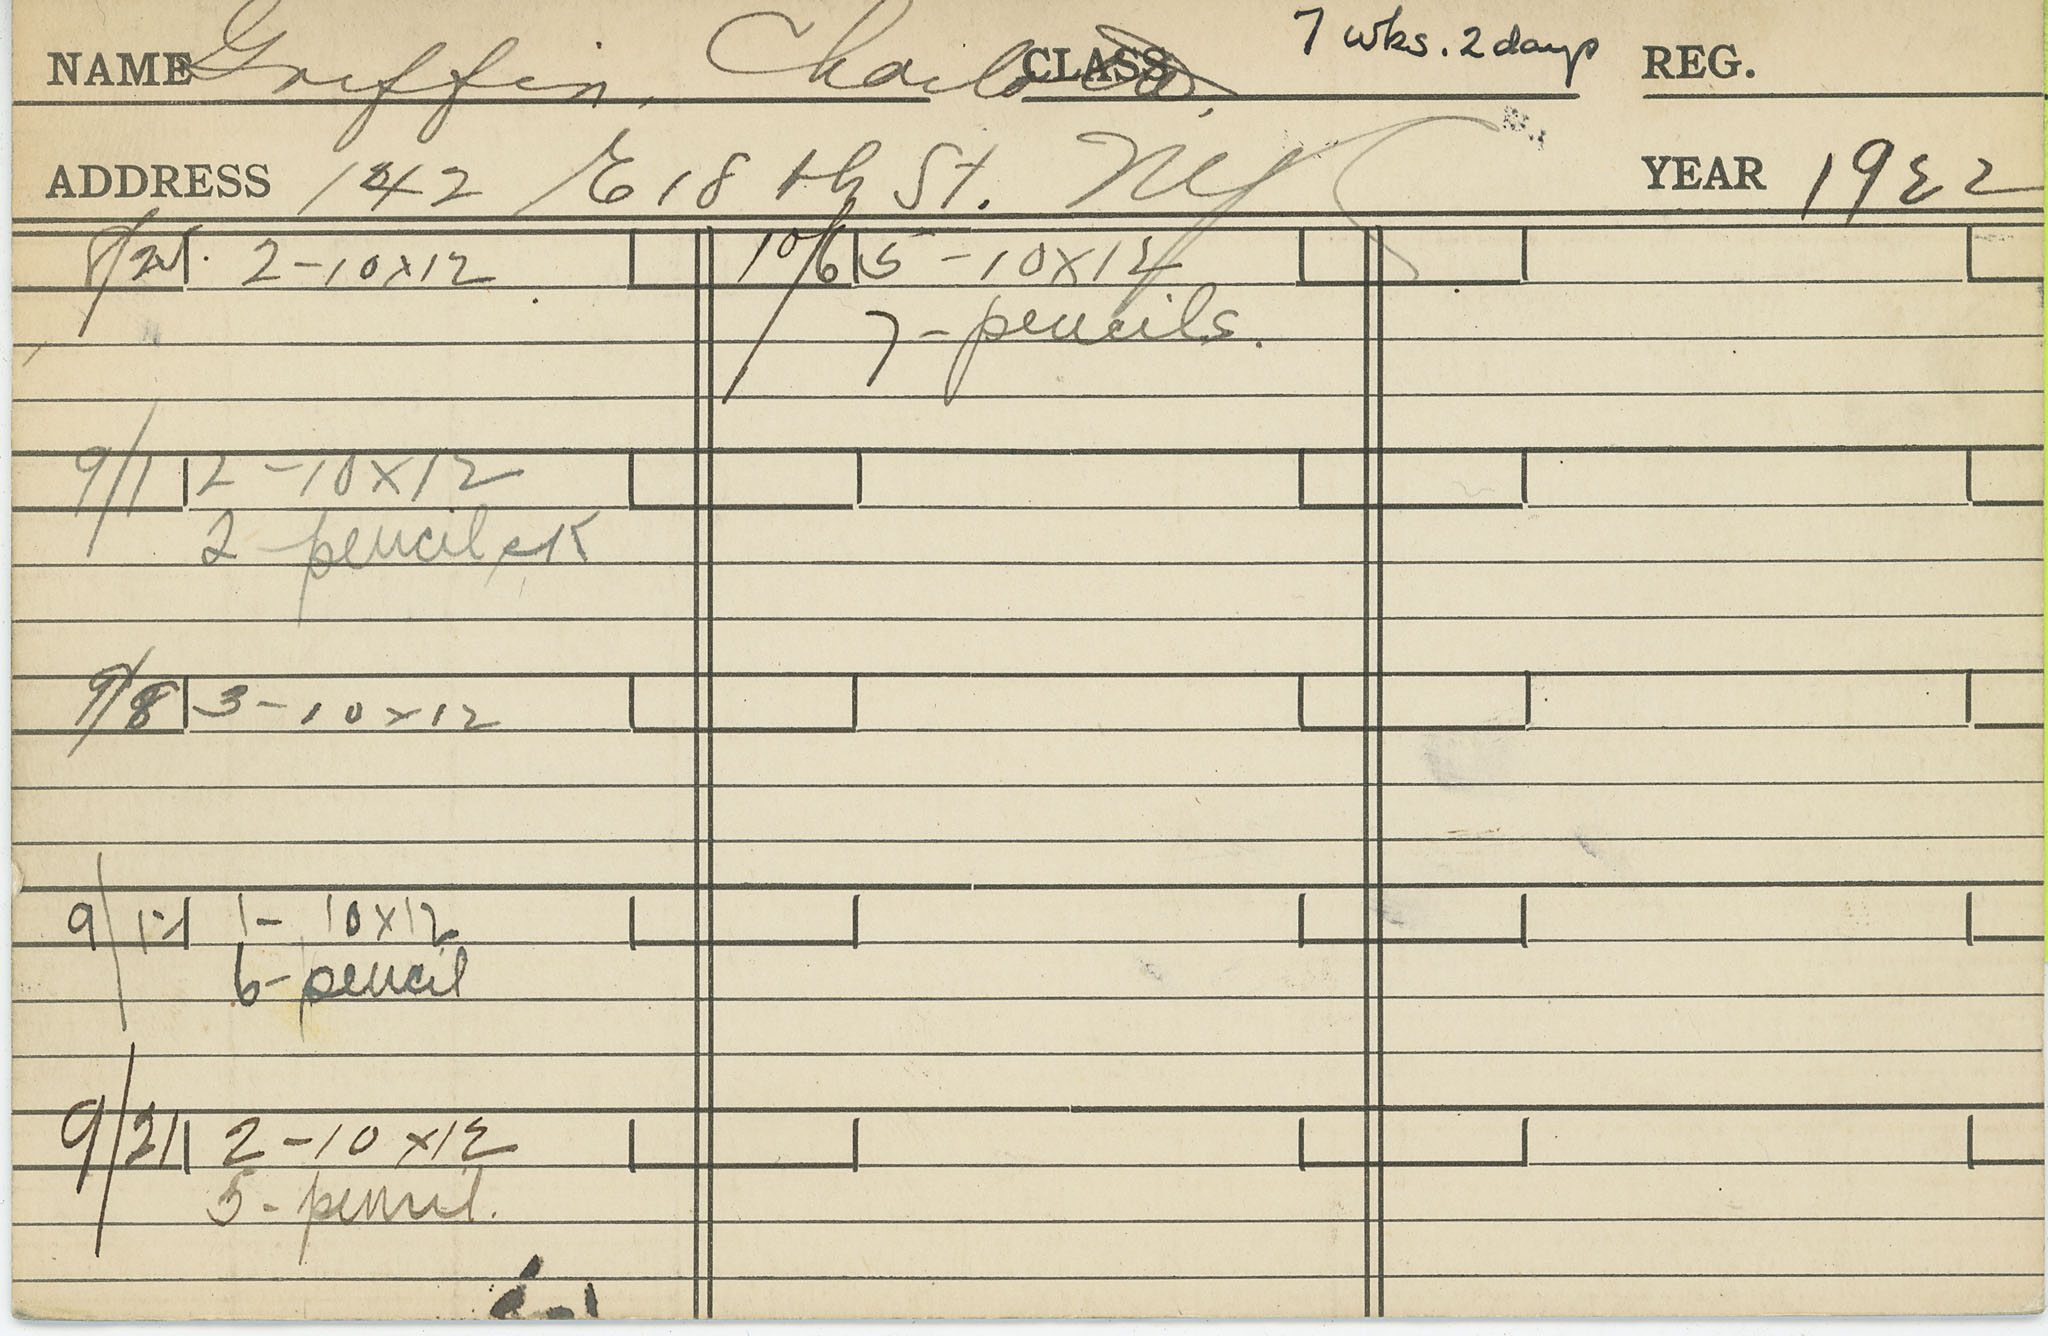 NAME Griffin, Charlotte. CLASS 7 wks. 2 days REG.
ADDRESS 142 E 18th St. NYC YEAR 1922
2-10x12
9/1 2-10x12
2 pencil
9/8 3-10x12
1- 10x12
6-pencil
9/21 2-10x12
5-pencil.
10/6 5-10x12
7-pencils.